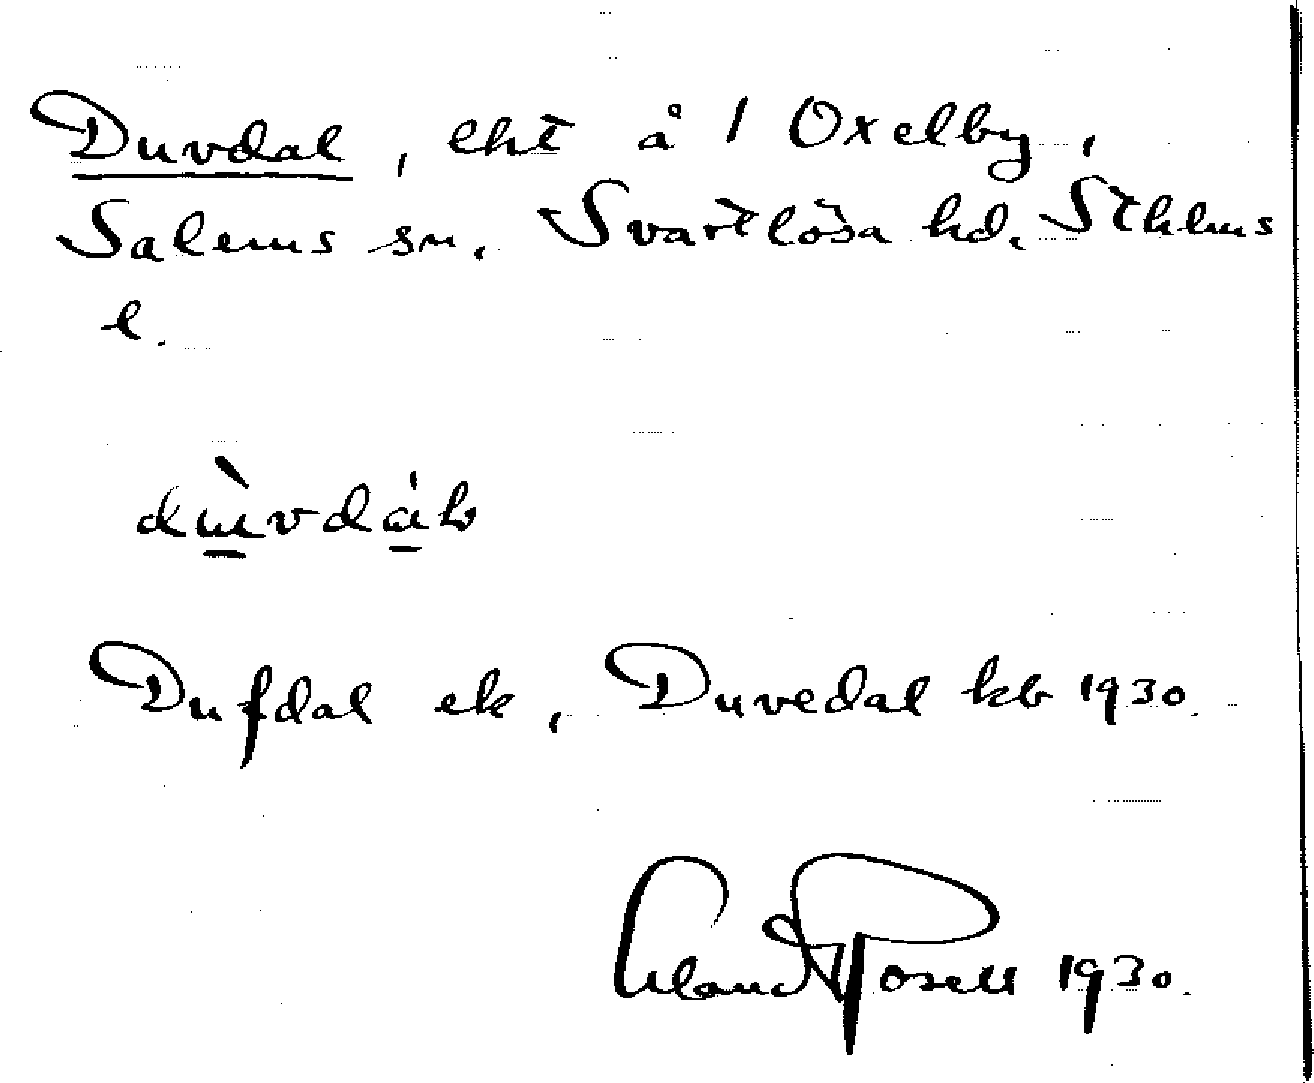 Duvdal, lht å 1 Oxelby,
Salems sn. Svartlösa hd. Sthlms
l.
dùvdál
Dufdal ek, Duvedal kb 1930.
Erland Rosell 1930.